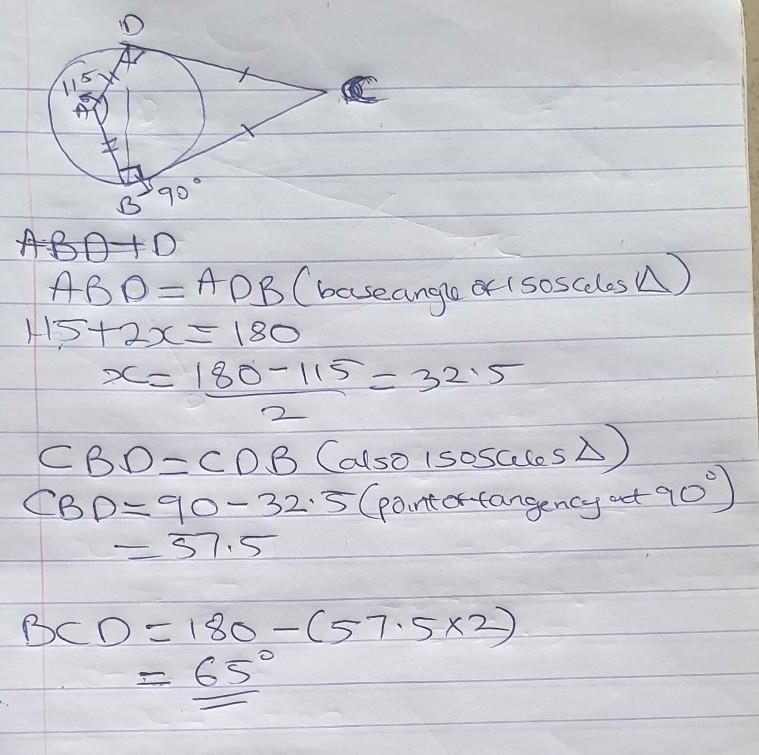 D
115
A
C
B 90°
ABD+D
ABD=ADB (base angle of isosceles Δ)
115+2x=180
x=180-115=32.5
2
CBD=CDB (also isosceles Δ)
CBD=90-32.5 (point of tangency at 90°)
=57.5
BCD=180-(57.5x2)
=65°